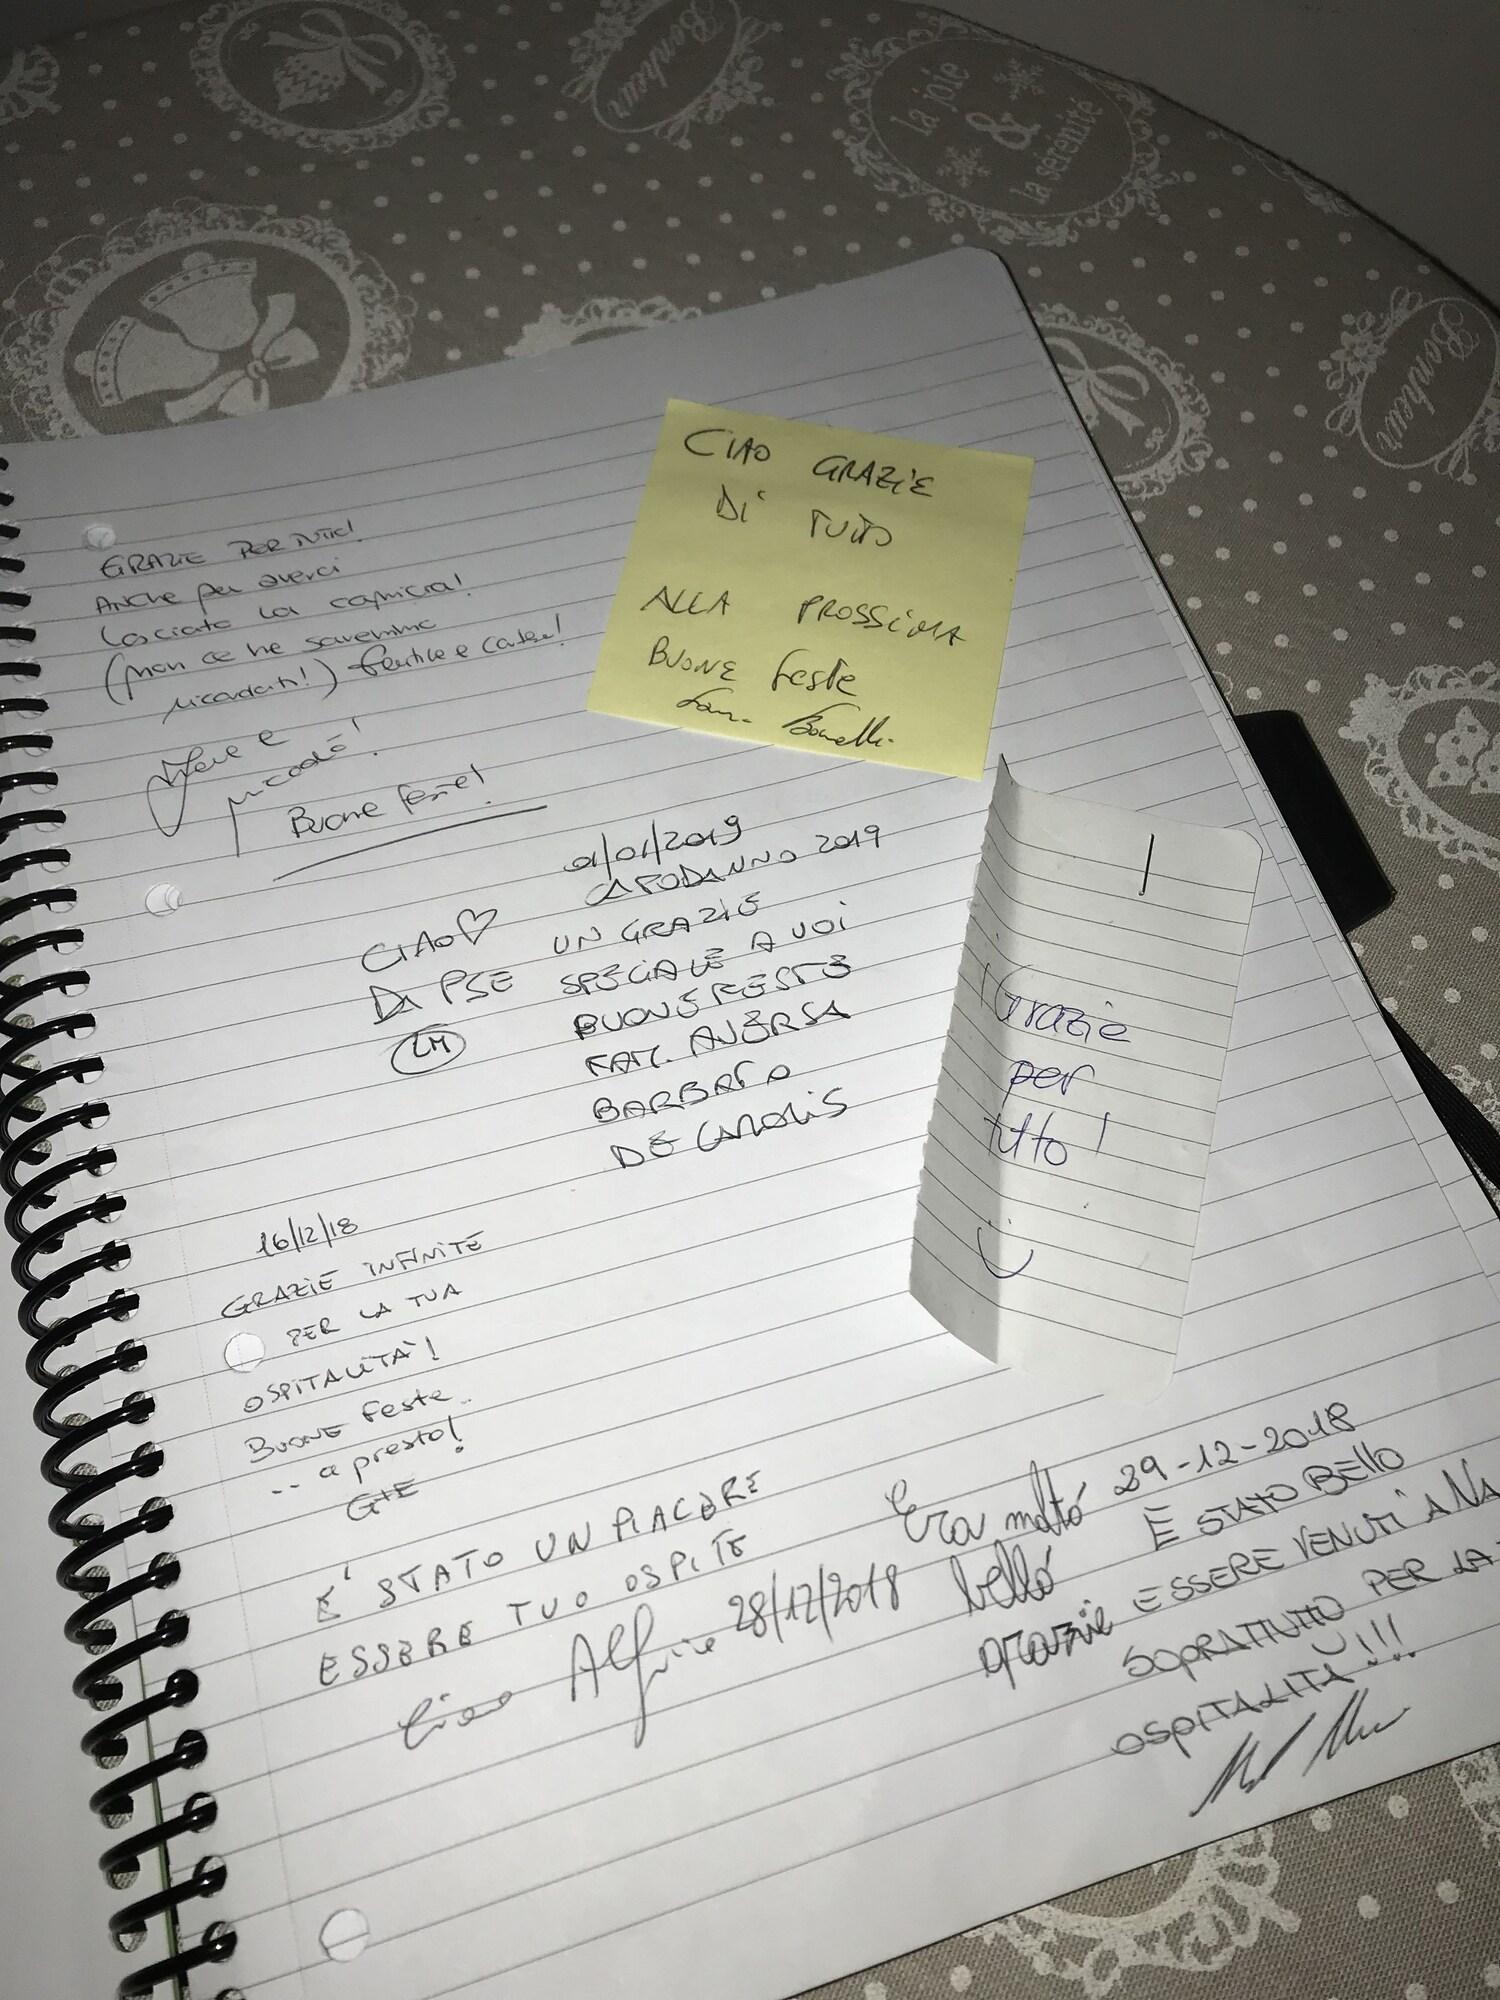 Bonheur
la joie
&
la sérénité
Bonheur
CIAO GRAZIE
DI TUTTO
ALLA PROSSIMA
BUONE feste
GRAZIE PER TUTTO!
ANCHE per averci
lasciato la camicia!
(non ce ne saremmo
ricordati!)
Buone feste!
01/01/2019
CAPODANNO 2019
CIAO♡
DA PSE
LM
UN GRAZIE
SPECIALE A VOI
BUONE FESTE
FAM. AVERSA
BARBATO
DE CAROLIS
Grazie
per
tutto!
16/12/18
GRAZIE INFINITE
PER LA TUA
OSPITALITÀ!
BUONE feste..
.. a presto!
E' STATO UN PIACERE
ESSERE TUO OSPITE
Ciao 28/12/2018
Era molto
bello
grazie
29-12-2018
È STATO BELLO
ESSERE VENUTI A NA
SOPRATTUTTO PER LA
OSPITALITÀ!!!